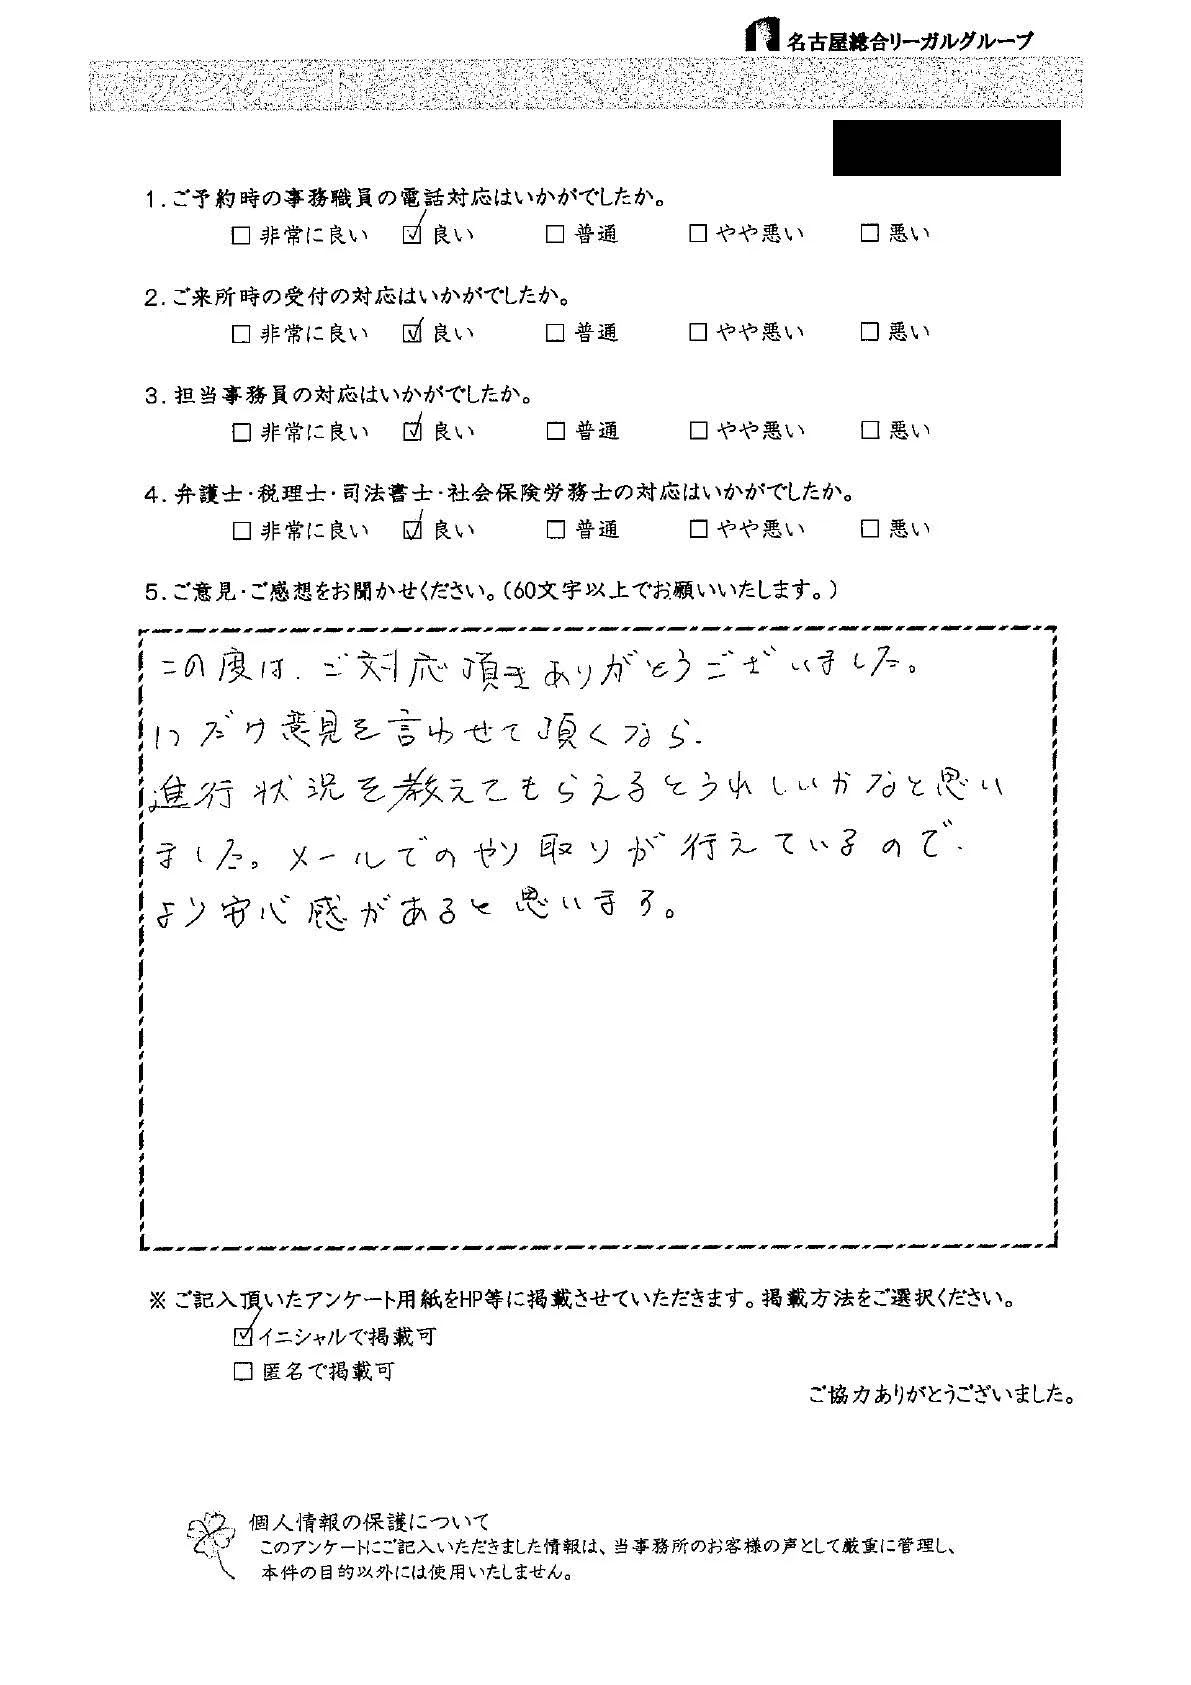 名古屋総合リーガルグループ
アンケート
1.ご予約時の事務職員の電話対応はいかがでしたか。
□ 非常に良い ☑ 良い □ 普通 □ やや悪い □ 悪い
2.ご来所時の受付の対応はいかがでしたか。
□ 非常に良い ☑ 良い □ 普通 □ やや悪い □ 悪い
3.担当事務員の対応はいかがでしたか。
□ 非常に良い ☑ 良い □ 普通 □ やや悪い □ 悪い
4.弁護士・税理士・司法書士・社会保険労務士の対応はいかがでしたか。
□ 非常に良い ☑ 良い □ 普通 □ やや悪い □ 悪い
5.ご意見・ご感想をお聞かせください。(60文字以上でお願いいたします。)
この度は、ご対応頂きありがとうございました。
1つだけ意見を言わせて頂くなら、
進行状況を教えてもらえるとうれしいかなと思い
ました。メールでのやり取りが行えているので、
より安心感があると思います。
※ご記入頂いたアンケート用紙をHP等に掲載させていただきます。掲載方法をご選択ください。
☑イニシャルで掲載可
□ 匿名で掲載可
ご協力ありがとうございました。
個人情報の保護について
このアンケートにご記入いただきました情報は、当事務所のお客様の声として厳重に管理し、
本件の目的以外には使用いたしません。